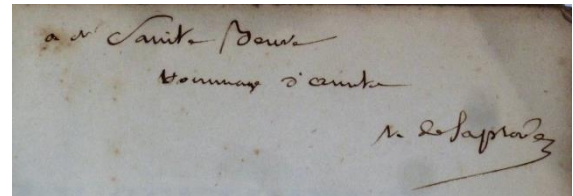 a Mr Sainte Beuve
Hommage d'amitié
V. de Laprade